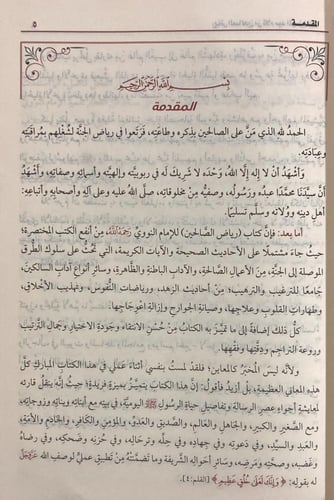 المقدمة
رياض الصالحين من كلام سيد المرسلين
٥
بِسْمِ اللَّهِ الرَّحْمَنِ الرَّحِيمِ
المقدمة
الحمدُ لله الذي مَنَّ على الصالحين بذِكره وطاعتِه، فرَتعوا في رياض الجنَّة لشُغْلِهم بمُراقبَتِه
وعبادتِه.
وأشهدُ أنْ لا إله إلَّا اللهُ، وَحْدَه لا شَريكَ له في ربوبيَّته وإلهيَّته وأسمائِه وصِفاتِه، وأشْهَدُ
أنَّ سيِّدَنا محمَّدًا عبدُه ورسُوله، وصفيُّه مِنْ مخلوقاتِه، صلَّى الله عليه وعلى آلِه وأصحابِه وأتباعِه:
أهلِ دينِه ووِلائه وسلَّم تسليمًا.
أما بعد: فإنَّ كتابَ (رياض الصَّالحين) للإمام النوويِّ رَحِمَهُ اللَّهُ، مِنْ أنفع الكتب المختصرة؛
حيثُ جاءَ مشتملًا على الأحاديث الصحيحة والآيات الكريمة، التي تحُثُّ على سلوك الطُّرق
الموصلة إلى الجنَّة، مِنَ الأعمال الصَّالحة، والآداب الباطنة والظَّاهرة، وسائر أنواع آداب السالكين،
جامعًا للترغيب والترهيب؛ مِنْ أحاديث الزهد، ورياضات النُّفوس، وتهذيب الأخلاق،
وطهارات القلوب وعلاجها، وصيانة الجوارح وإزالة اعوجاجها.
كلُّ ذلك إضافةً إلى ما تميَّزَ به الكتابُ مِنْ حُسْنِ الانتقاء وجَودة الاختيار وجمال الترتيب
وروعة التراجم ودِقَّتها وفقهها.
ولأنَّه ليسَ الخبرُ كالمعاينة؛ فلقد لمستُ بنفسي أثناءَ عَمَلي في هذا الكتاب المبارك كلَّ
هذه المعاني العظيمة، بل أزيدُ فأقولُ: إنَّ هذا الكتابَ يتميَّزُ بميزة فريدة؛ حيثُ إنَّه ينقلُ قارئَه
لمعايشة أجواء عصر الرسالة وتفاصيل حياةِ الرسولِ ﷺ اليوميَّة، في بيته مع أبنائه وبناته وزوجاته،
ومع الصَّغير والكبير، والجاهل والعالم، والصَّديق والعدوِّ، والمؤمن والكافر، والخادم والأمَة،
والعبد والسيِّد، وفي دعوته وفي جِهاده وفي حِلِّه وترحاله، وفي حُزنه وضحكه، وفي رضاهُ
وغضبه، وصحَّته ومرضه، وسائر أحوالِه الشريفة وما تضمَّنتْهُ مِنْ تطبيقٍ عمليٍّ لوصف الله عَزَّوَجَلَّ
له بقوله: ﴿وَإِنَّكَ لَعَلَى خُلُقٍ عَظِيمٍ﴾ [القلم:٤].